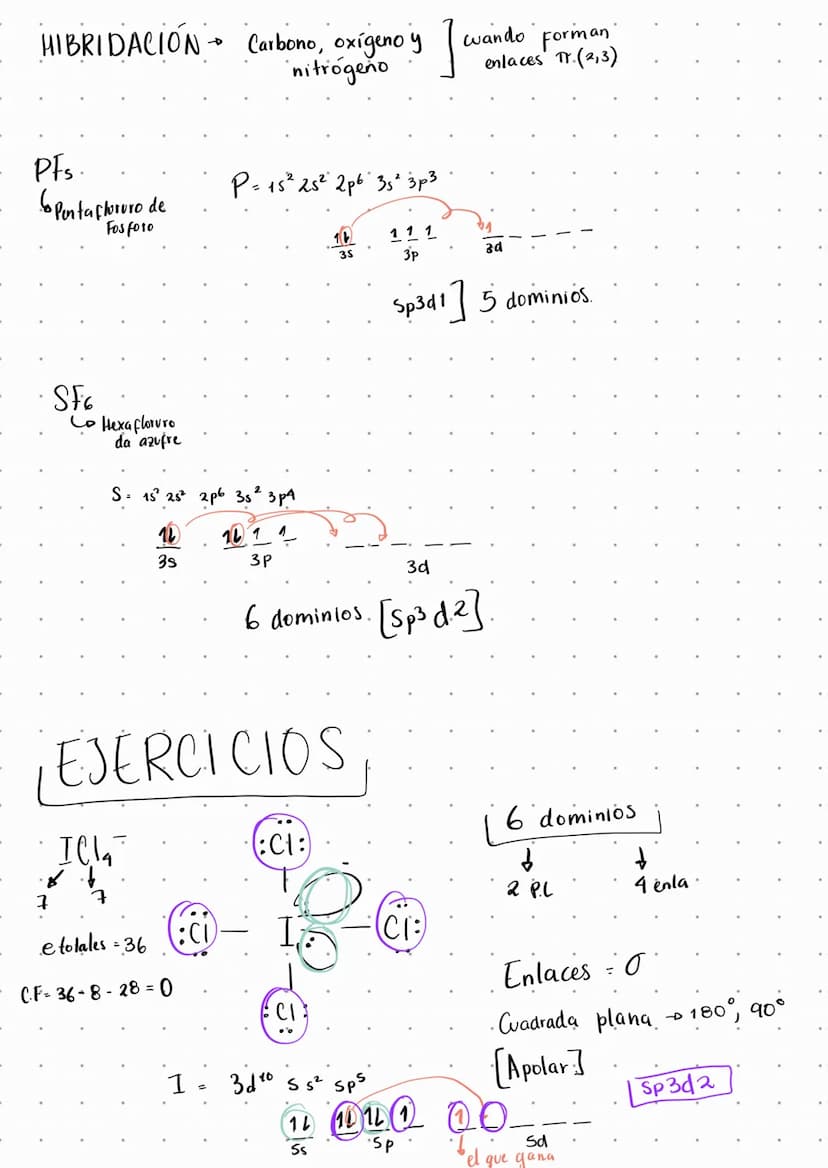 HIBRIDACIÓN → Carbono, oxígeno y nitrógeno ] cuando forman enlaces π.(2,3)
PF5
↳ Pentafloruro de Fosforo
P = 1s² 2s² 2p⁶ 3s² 3p³
1L 1 1 1 1 _ _ _ _
3s 3p 3d
Sp3d1 ] 5 dominios.
SF6
↳ Hexafloruro da azufre
S = 1s² 2s² 2p⁶ 3s² 3p4
1L 1L 1 1 _ _ _ _ _
3s 3p 3d
6 dominios. [Sp³ d2]
EJERCICIOS
ICl4⁻
7 7
e totales = 36
C.F = 36 - 8 - 28 = 0
:Cl:
:Cl — I — Cl:
:Cl:
6 dominios
2 P.L 4 enla
Enlaces = σ
Cuadrada plana → 180°, 90°
[Apolar]
Sp3d2
I = 3d¹⁰ 5s² 5p⁵
1L 1L 1L 1 1 _ _ _
5s 5p 5d
el que gana